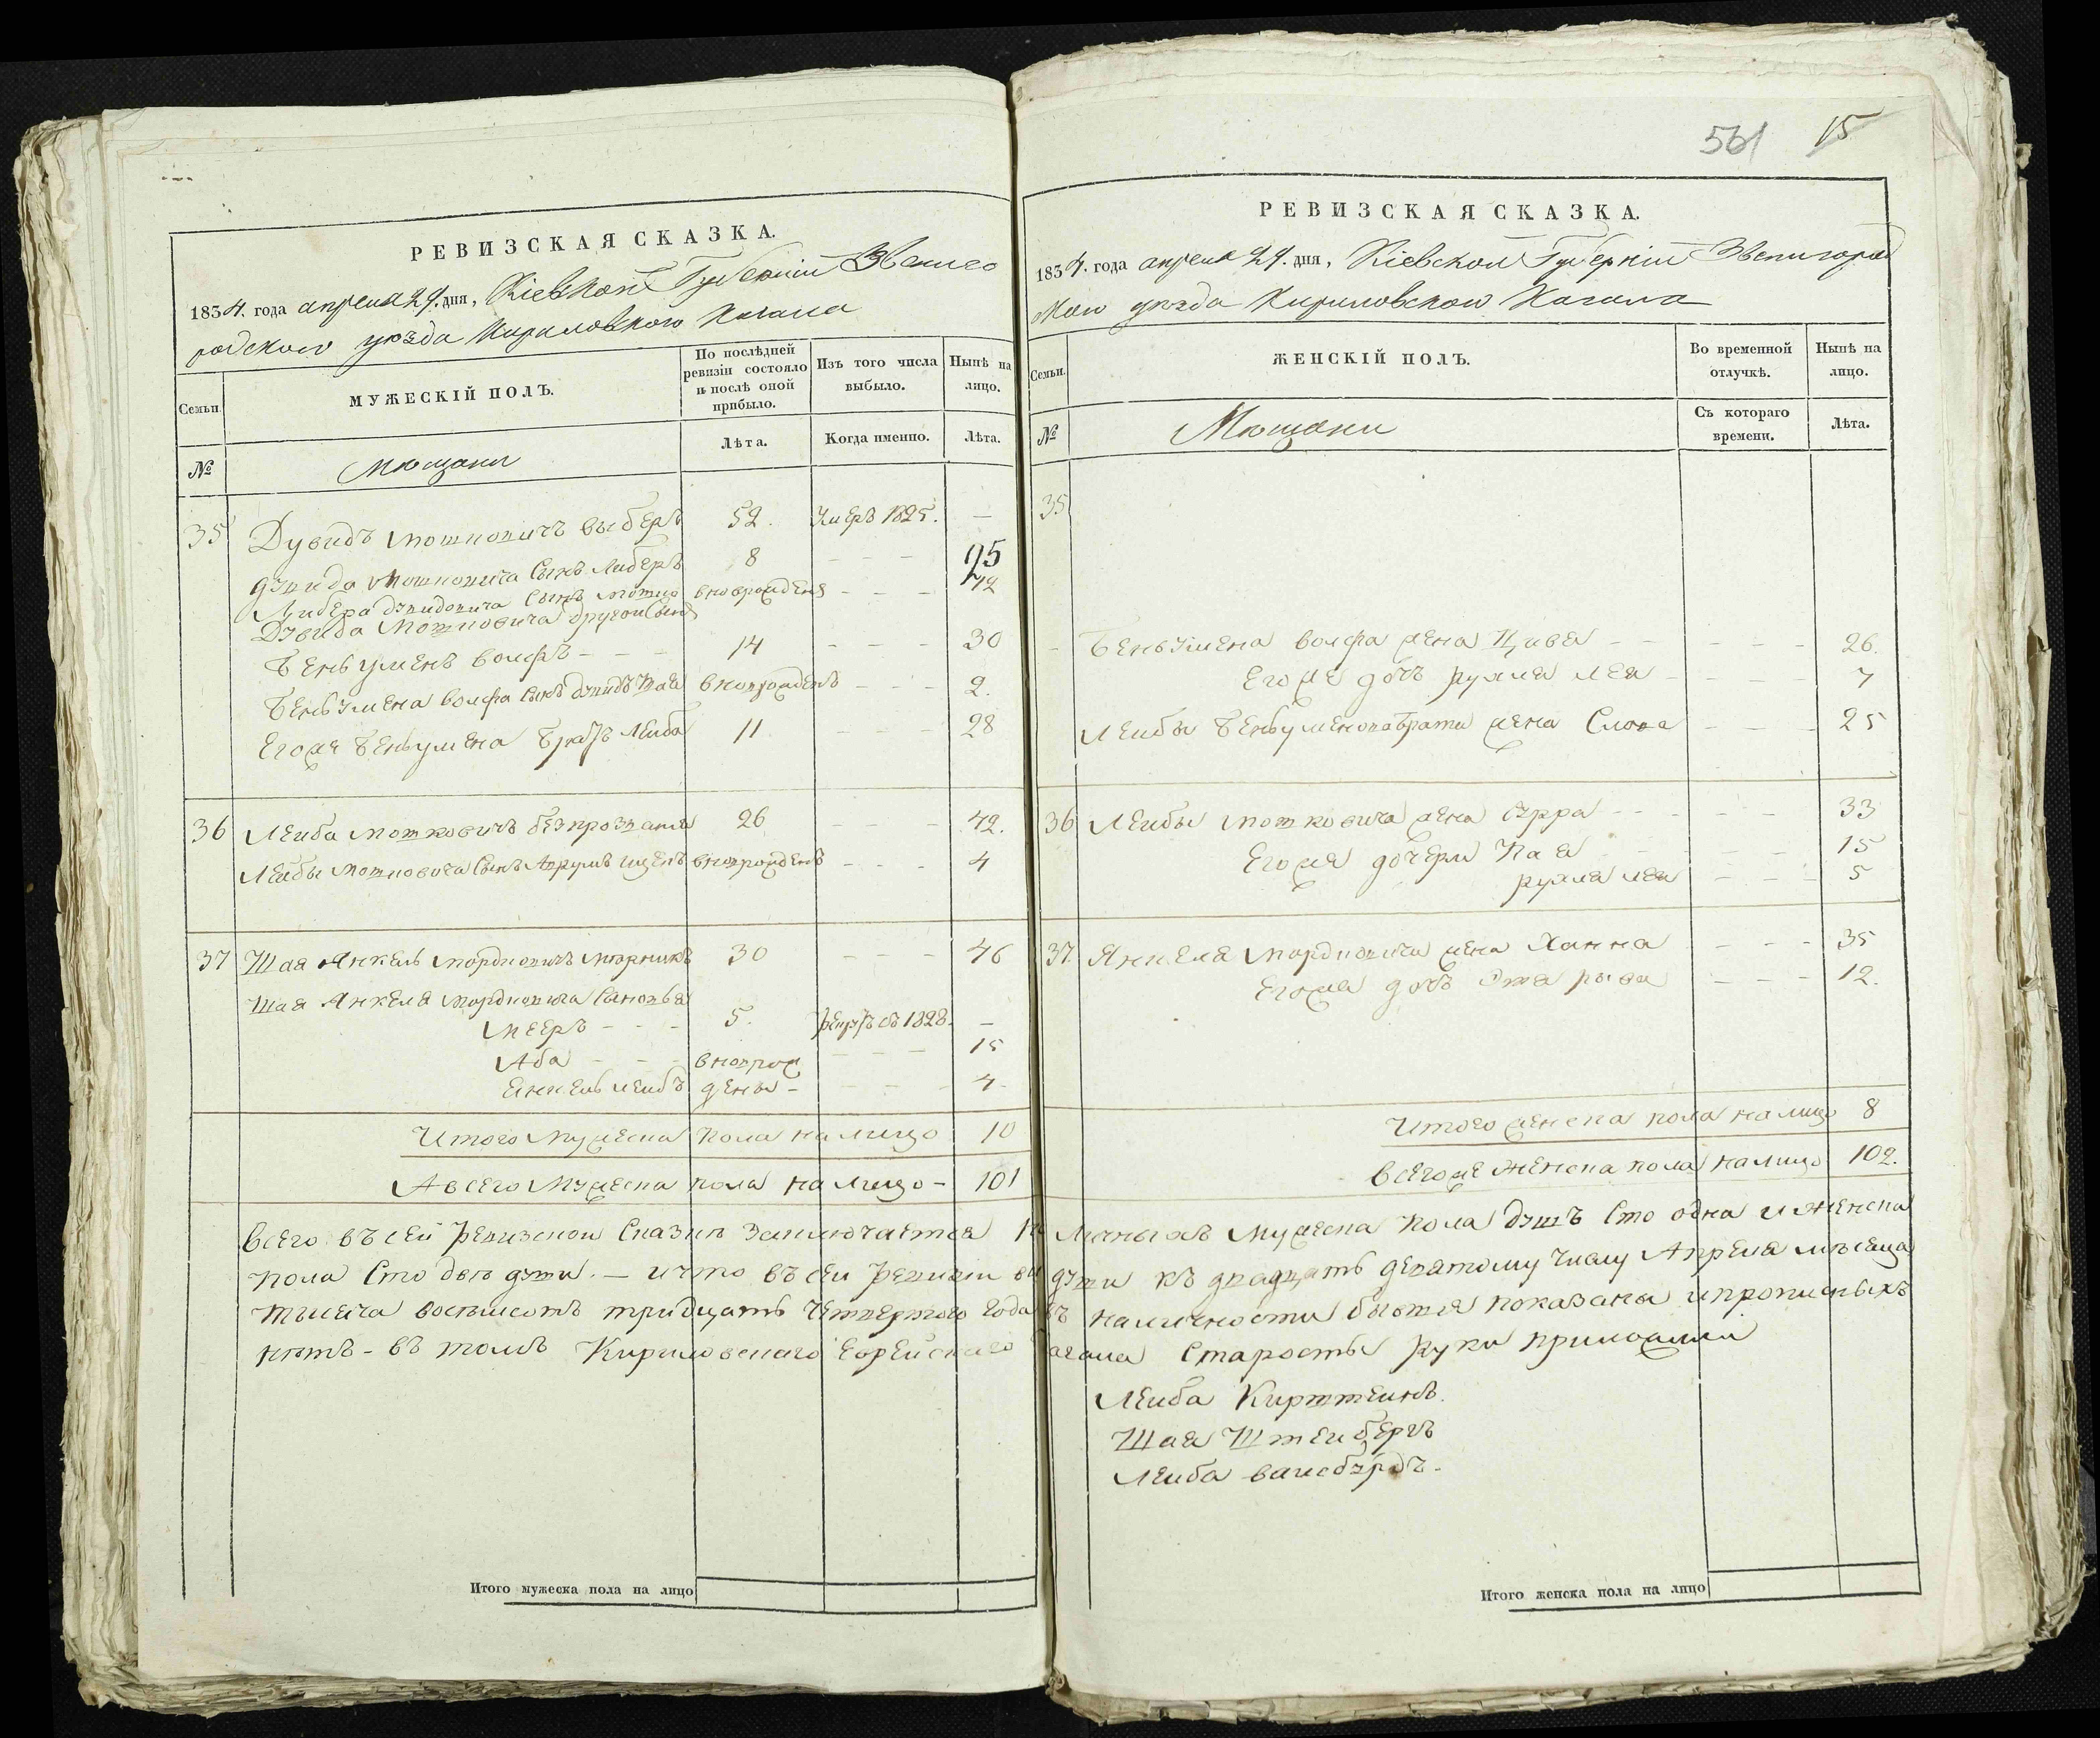 РЕВИЗСКАЯ СКАЗКА.
1834. года апреля 29. дня, Кіевской Губерніи Звениго
родского уезда Кириловского Кагала
Семьи.
МУЖЕСКІЙ ПОЛЪ.
По послѣдней ревизіи состояло и послѣ оной прибыло.
Изъ того числа выбыло.
Нынѣ на лицо.
№
Мещани
Лѣта.
Когда именно.
Лѣта.
35 Дувидъ Мошковичъ Выберъ 52. Умеръ 1825. —
Дувида Мошковича Сынъ Либеръ 8 - - - 25
Либера Дувидовича Сынъ Мошко вноврожденъ - - - 
Дувида Мошковича другой Сынъ
Беньуменъ Волфъ - - - 14 - - - 30
Беньумена Волфа Сынъ Дувидъ Шая вноврожденъ - - - 2.
Егоже Беньумена братъ Лейба 11 - - - 28
36 Лейба Мошковичъ безпрозвания 26 - - - 42.
Лейбы Мошковича Сынъ Аврумъ вноврожденъ - - - 4
37 Шая Янкель Мордковичъ 30 - - - 46
Шая Янкеля Мордковича Сыновья
Мееръ - - - 5. 1828. —
Аба - - - вноврож - - - 15
Енкель Лейбъ дены - - - - 4
Итого Мужеска пола на лицо 10
А всего Мужеска пола на лицо - 101
Всего въ сей Ревизской Сказке Заключается на
пола Сто две души. — и что въ сей Ревизии все
тысяча восьмсотъ тридцать Четвертого Года
нетъ - въ томъ Кириловскаго Еврейскаго
Итого мужеска пола на лицо
561 15
РЕВИЗСКАЯ СКАЗКА.
1834. года апреля 29. дня, Кіевской Губерніи Звенигород
ского уезда Кириловского Кагала
Семьи.
ЖЕНСКІЙ ПОЛЪ.
Во временной отлучкѣ.
Нынѣ на лицо.
№
Мещани
Съ котораго времени.
Лѣта.
35
- Беньумена Волфа жена Цивя - - - - - 26.
Егоже дочь Рухля Лея - - - - 7
Лейбы Беньуменова брата жена Слова - - - 25
36 Лейбы Мошковича жена Сурра - - - - - - 33
Егоже дочери Хая - - - - - 15
Рухля Лея - - - 5
37 Янкеля Мордковича жена Ханна - - - 35
Егоже дочь Рыва - - - 12.
Итого женска пола на лицо 8
всегоже женска пола на лицо 102.
личныхъ Мужеска пола душъ Сто одна и женска
души къ двадцать девятому числу Апреля месяца
въ наличности бытия показаны и прописныхъ
Кагала Старосты руки приложили
Лейба
Шая Штейнбергъ
Лейба
Итого женска пола на лицо